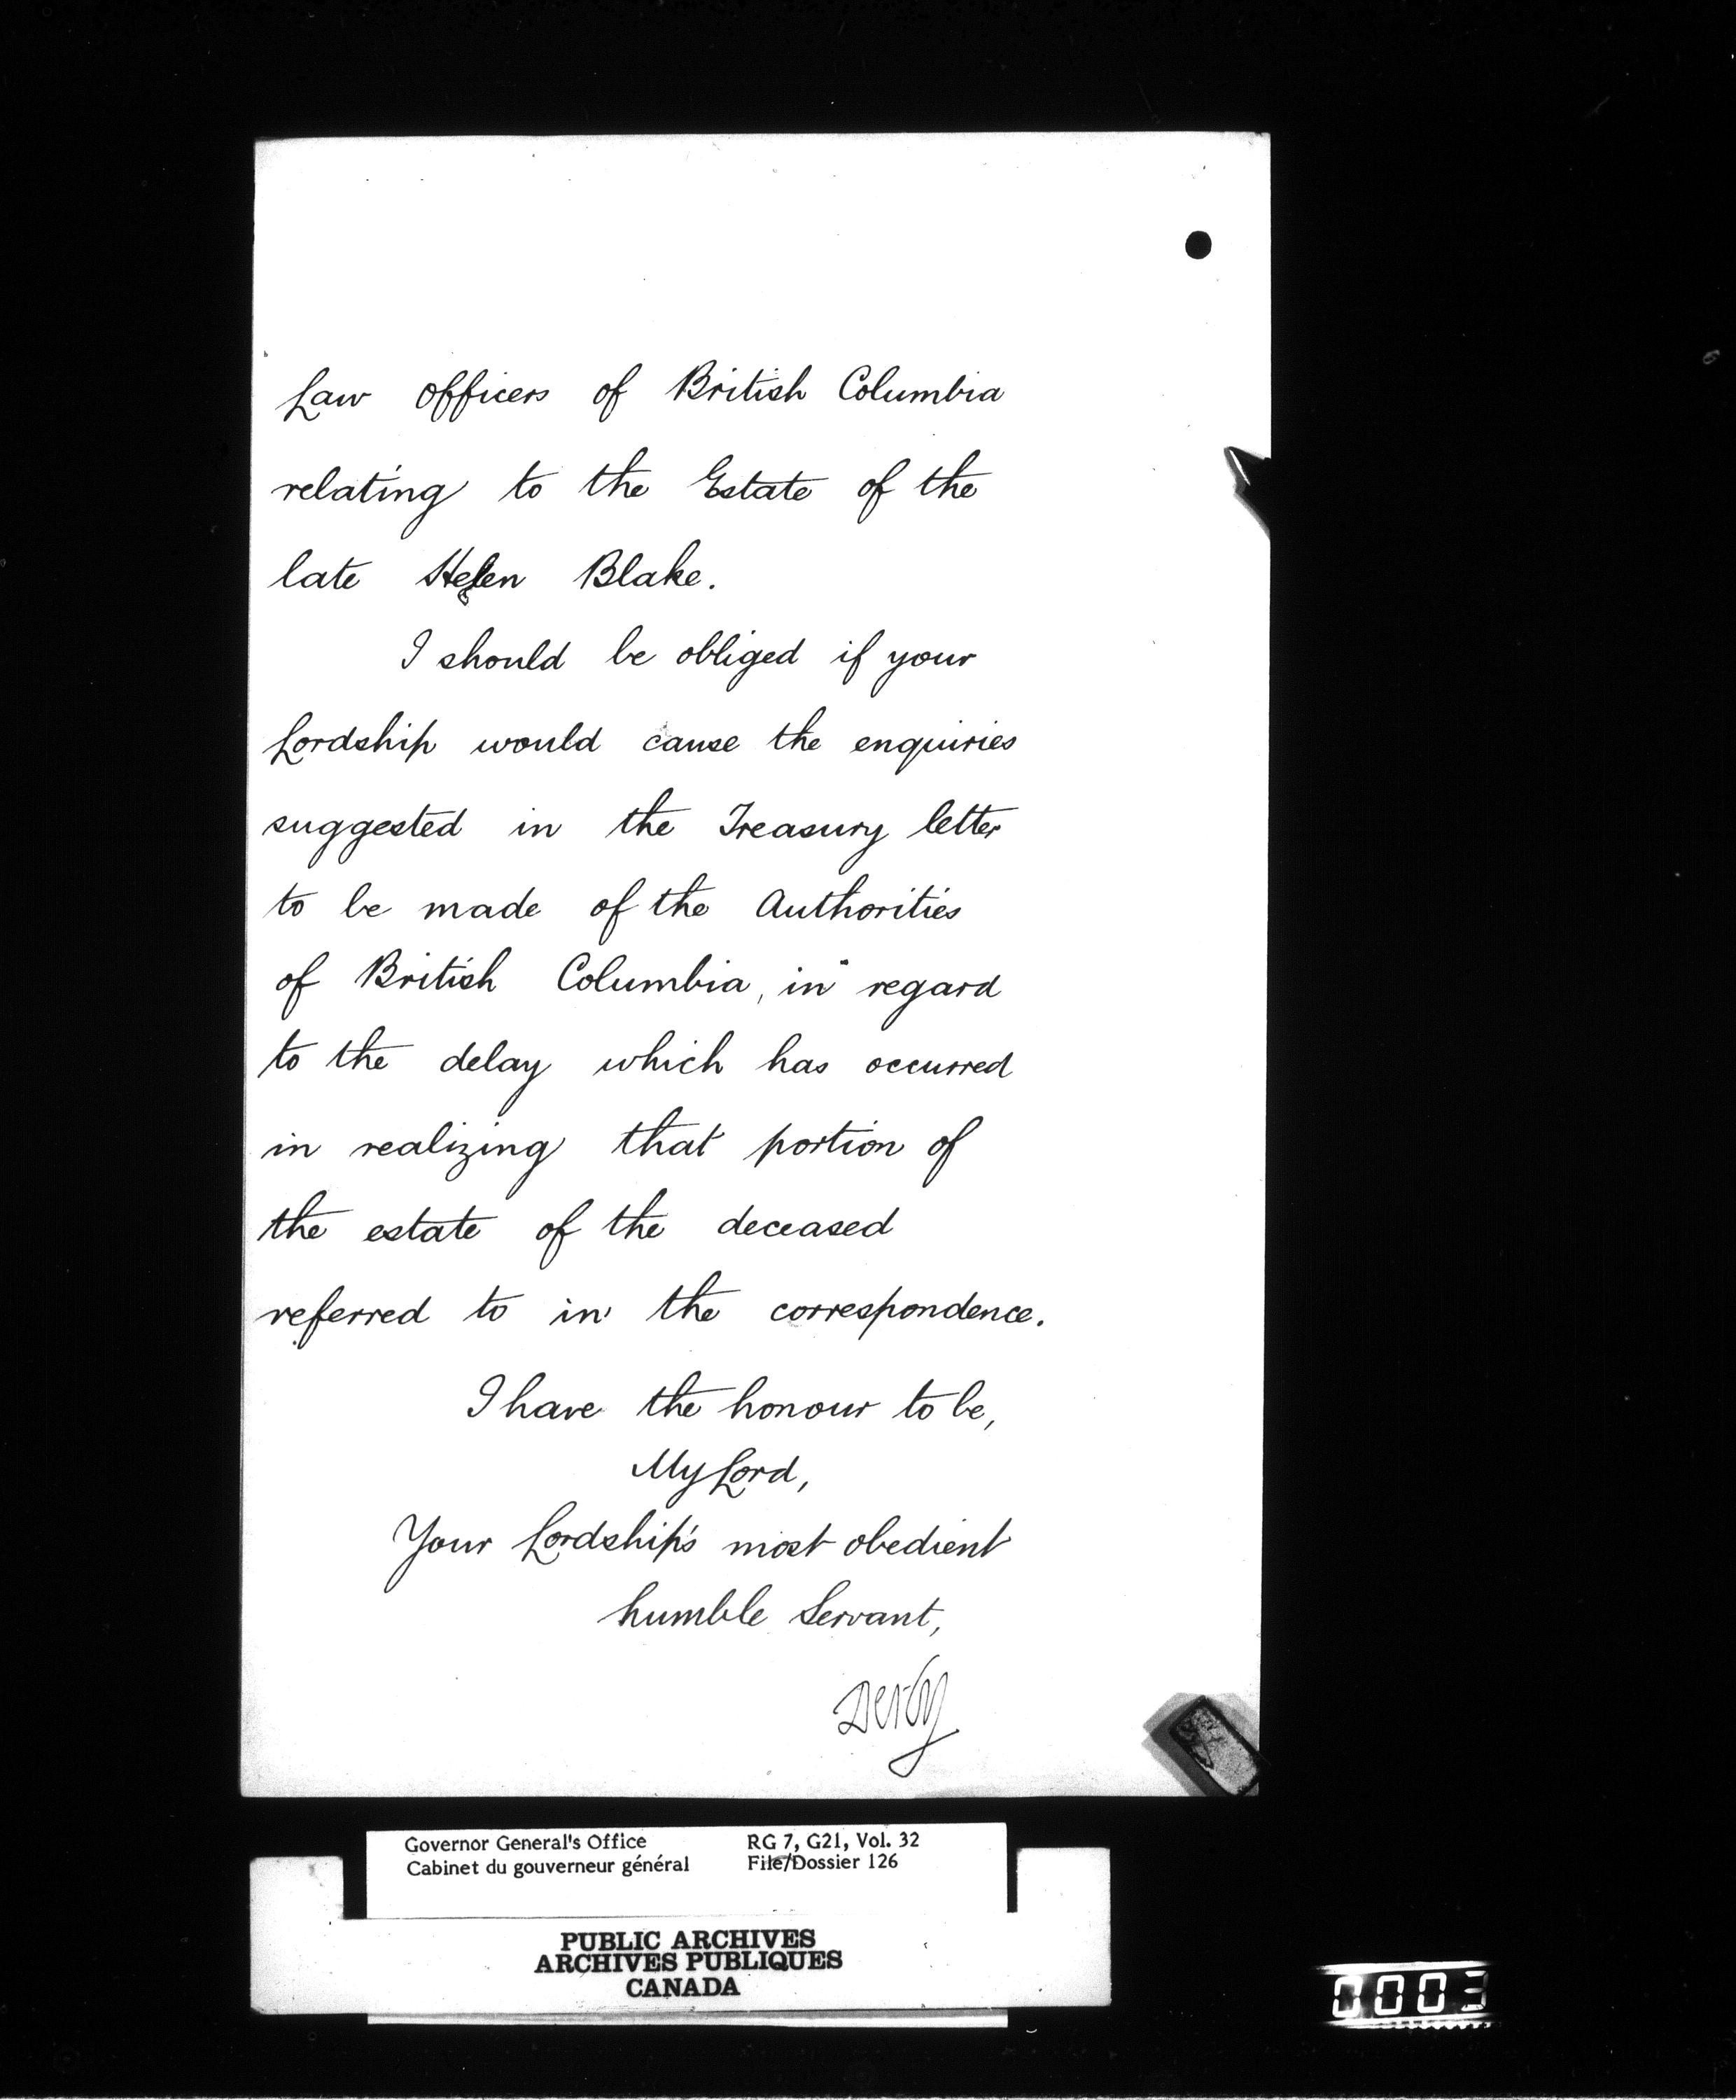 Law Officers of British Columbia
relating to the Estate of the
late Helen Blake.
I should be obliged if your
Lordship would cause the enquiries
suggested in the Treasury letter
to be made of the Authorities
of British Columbia, in regard
to the delay which has occurred
in realizing that portion of
the estate of the deceased
referred to in the correspondence.
I have the honour to be,
My Lord,
Your Lordship's most obedient
humble Servant,
Derby
Governor General's Office RG 7, G21, Vol. 32
Cabinet du gouverneur général File/Dossier 126
PUBLIC ARCHIVES
ARCHIVES PUBLIQUES
CANADA
0003